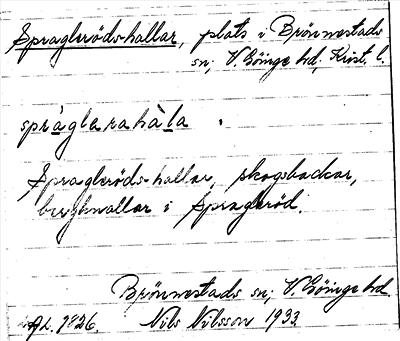 Spragleröds-hallar, plats i Brönnestads
sn, V. Göinge hd, Krist. l.
spràglarahàla.
Spragleröds-hallar, skogsbackar,
i Spragleröd.
Brönnestads sn, V. Göinge hd.
Nils Nilsson 1933